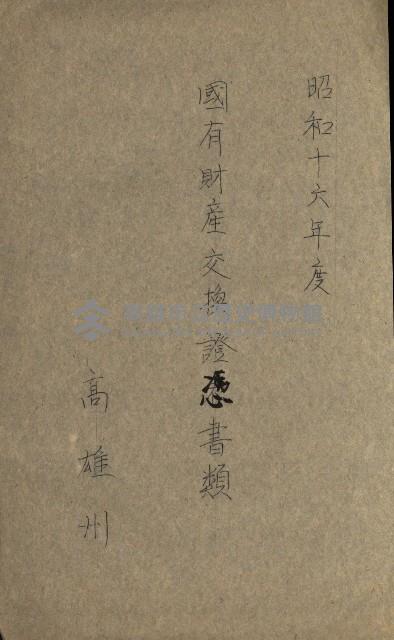 昭和十六年度
國有財產交換證憑書類
高雄州